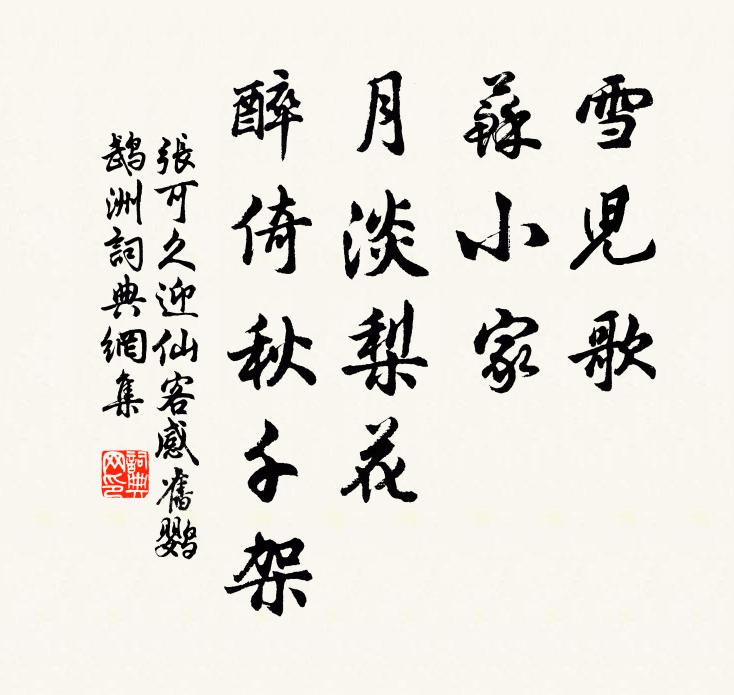 雪児歌
蘇小家
月淡梨花
醉倚秋千架
張可久迎仙客感舊鸚
鵡洲詞典網集
詞典
网印